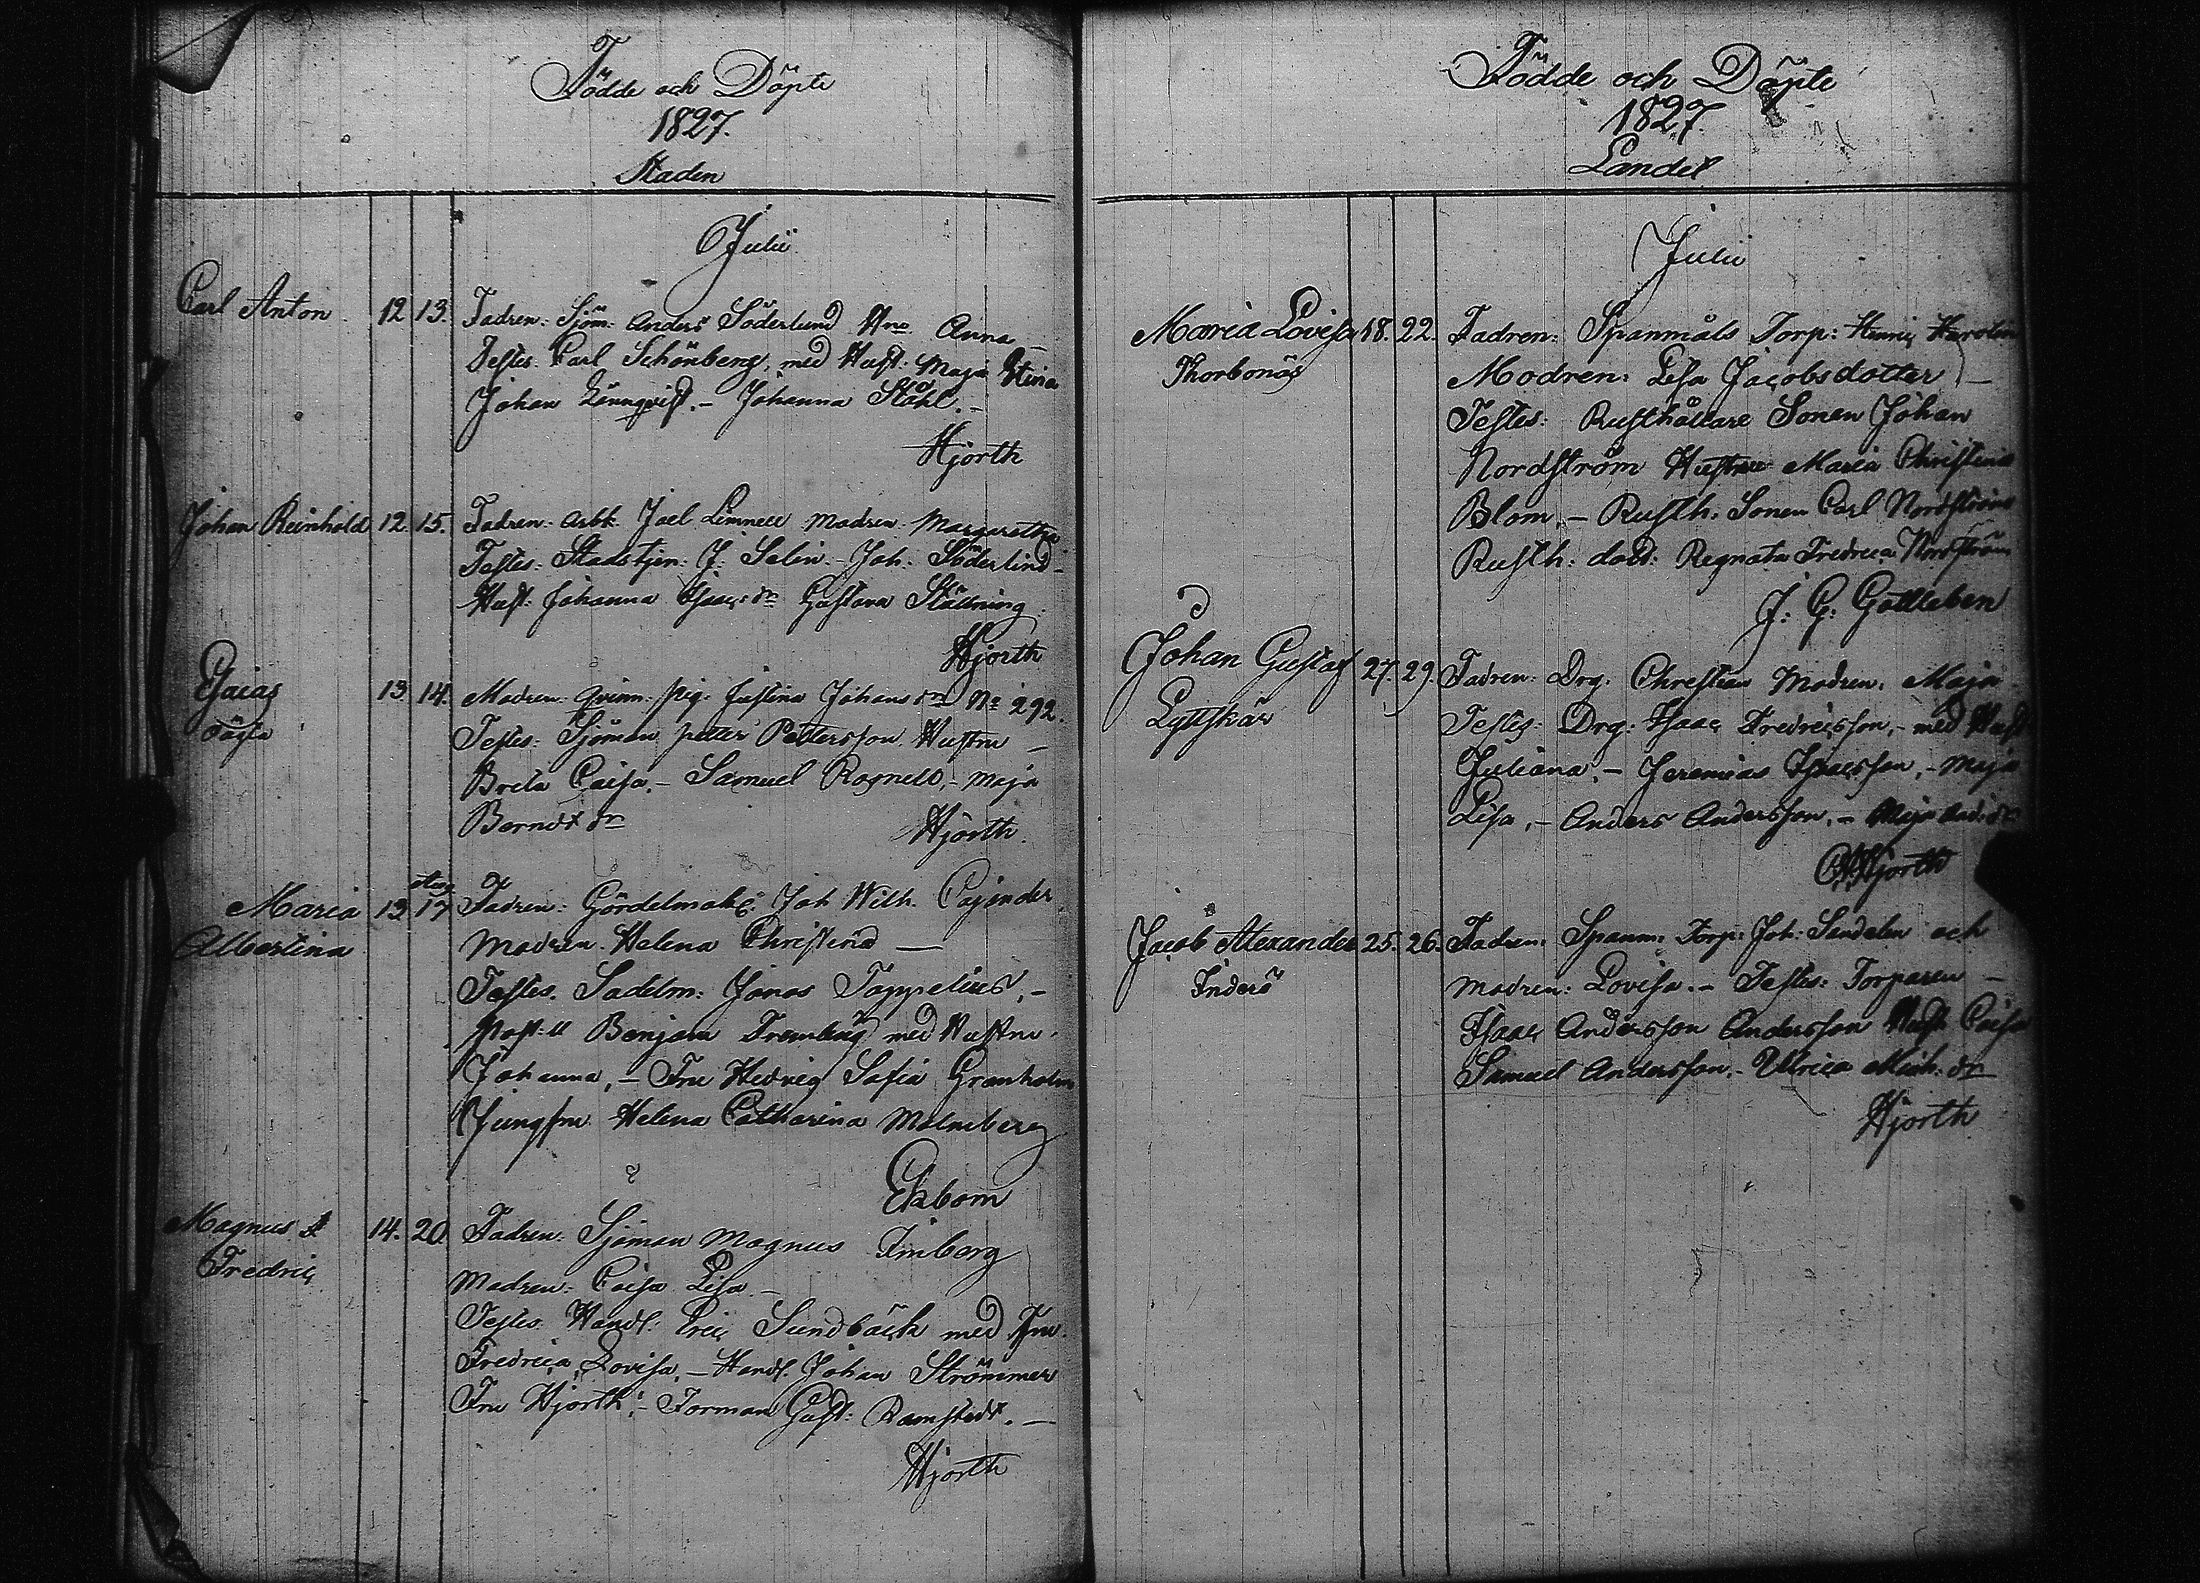 Födde och Döpte
1827.
Staden
Julii
Carl Anton 12 13. Fadren: Sjöm: Anders Söderlund Hru Anna –
Testes. Carl Schönberg, med Hust: Maja Stina
Johan Lönnqvist. – Johanna Ståhl. –
Hjorth
Johan Reinhold 12 15. Fadren: Arbk. Joel Limnell Modren: Margaretha
Testes: Stadstjen: J: Selin – Joh: Söderlind –
Hust: Johanna Isacs dr Gustava Ställning.
Hjorth
Esaias 13 14. Modren: qvinn: pig: Justina Johans dr No 292.
oäkta Testes: Sjöman Petter Pettersson, Hustru –
Breta Caisa. – Samuel Rognell, – Maja
Berndt dr Hjorth.
Aug
Maria 13 17 Fadren: Gördelmak: Joh Wilh. Cajander
Albertina Modren Helena Christina —
Testes. Sadelm: Jonas Toppelius, –
Post: Benjam Tremberg med Hustru
Johanna, – Fru Hedvig Sofia Granholm
Jungfru Helena Catharina Malmberg
Ekbom
Magnus 14. 20 Fadren: Sjöman Magnus Imberg
Fredric Modren: Caisa Lisa. –
Testes. Handl: Eric Sundbäck med Fru
Fredrica Lovisa, – Handl. Johan Strömmer
Fru Hjorth, – Forman Gust: Ramstedt. —
Hjorth
Födde och Döpte
1827.
Landet
Julii
Maria Lovisa 18. 22. Fadren: Spanmåls Torp: Henric
Thorbonäs Modren: Lisa Jacobsdotter –
Testes: Rusthållare Sonen Johan
Nordström Hustru Maria Christina
Blom, – Rusth: Sonen Carl Nordström
Rusth: dott: Regnata Fredrica Nordström
J: G: Gottleben
Johan Gustaf 27. 29. Fadren: Drg. Christian Modren: Maja
Lyttskär Testes: Drg: Isaac Fredricsson, – med Hust
Juliana, – Jeremias Isacsson, – Maja
Lisa, – Anders Andersson, – Maja And: dr
Hjorth
Jacob Alexander 25. 26. Fadren: Spanm: Torp: Joh: Sandelin och
Inderö Modren: Lovisa. – Testes: Torparen –
Isaac Andersson Andersson Hust Caisa
Samuel Andersson. – Ulrica Mich: dr
Hjorth